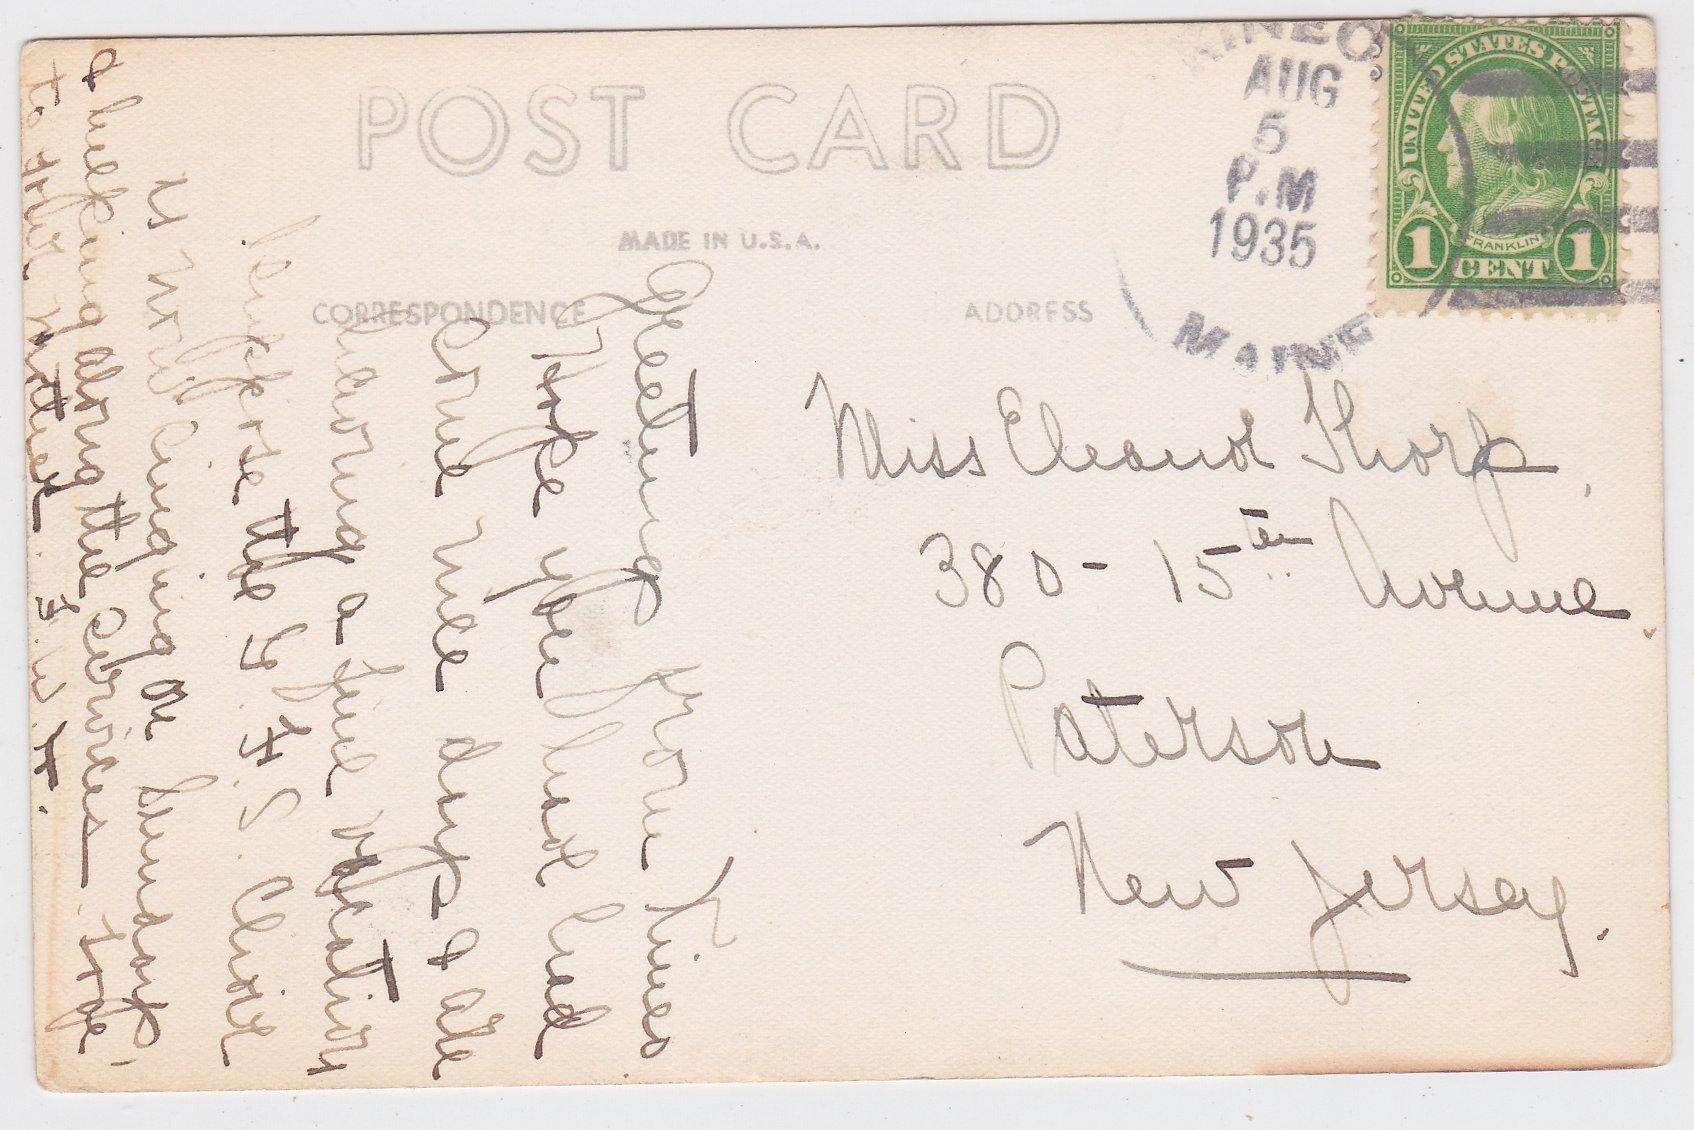 POST CARD
MADE IN U.S.A.
CORRESPONDENCE
ADDRESS
KINEO
AUG
5
P.M
1935
MAINE
UNITED STATES POSTAGE
FRANKLIN
1 CENT 1
Greetings from Kineo
Hope you have had
some nice days & are
having a fine vacation
Suppose the G. F. S. Choir
is now singing on Sunday,
& helping along the services.
to your mother.
Miss Eleanor Thorp,
380 - 15th Avenue,
Paterson
New Jersey.